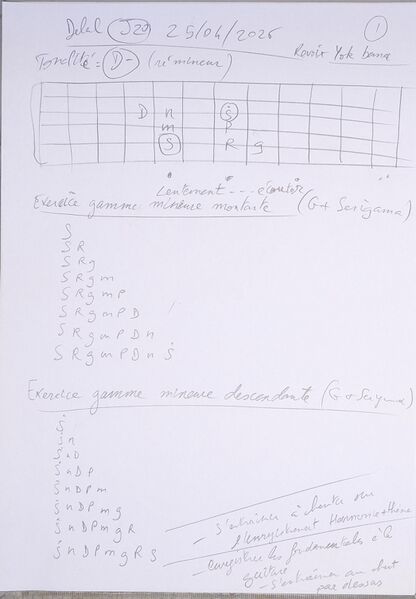 Delal J29 25/04/2026 1
Revoir Yok bana
Tonalité = D- (ré mineur)
D n Ṡ
m P
S R g
Lentement... écouter
Exercice gamme mineure montante (G+ Sarigama)
S
S R
S R g
S R g m
S R g m P
S R g m P D
S R g m P D n
S R g m P D n Ṡ
Exercice gamme mineure descendante (G+ Sarigama)
Ṡ
Ṡ n
Ṡ n D
Ṡ n D P
Ṡ n D P m
Ṡ n D P m g
Ṡ n D P m g R
Ṡ n D P m g R S
- S'entraîner à chanter sur
l'enregistrement
- enregistrer les fondamentales à la
guitare
- s'entraîner au
par dessus